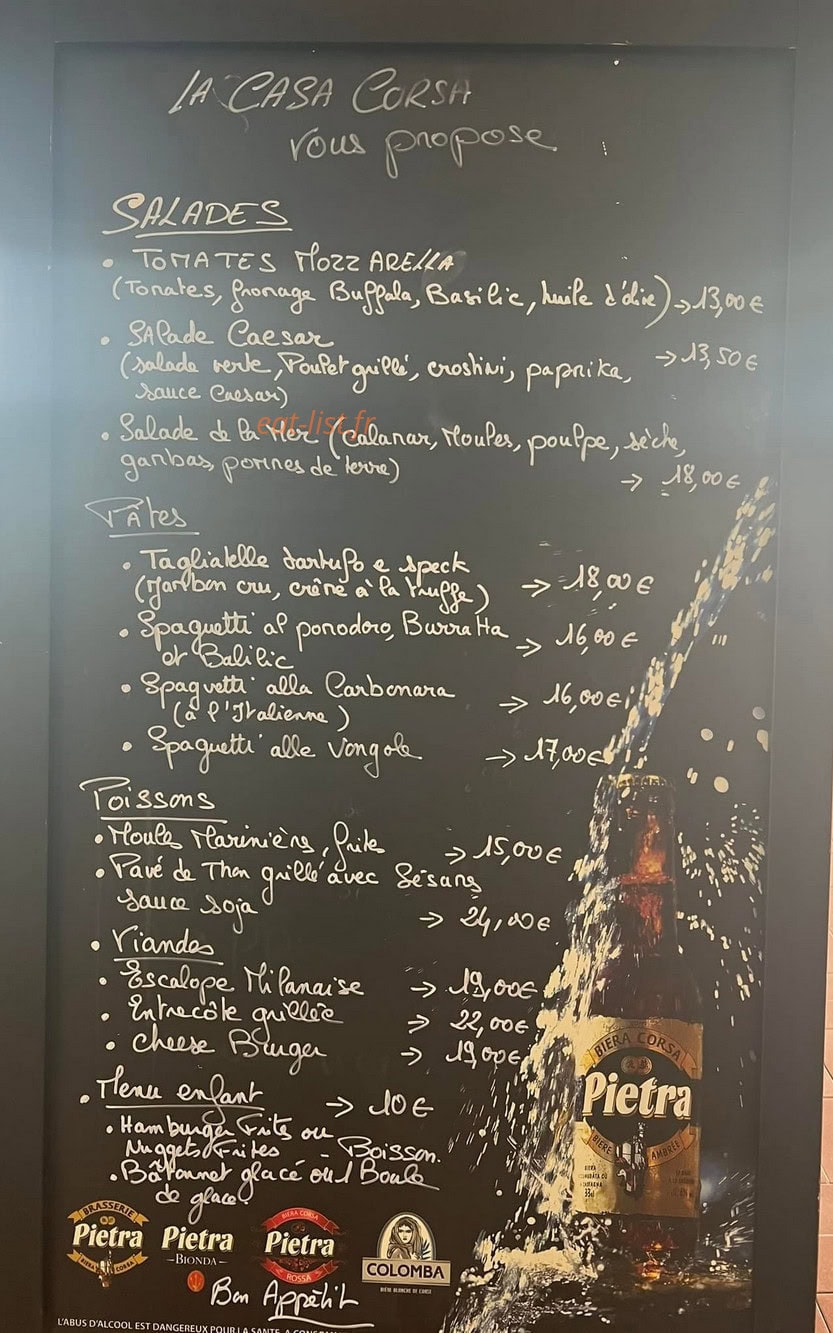 LA CASA CORSA
vous propose
SALADES
• TOMATES MOZZARELLA
(Tomates, fromage Buffala, Basilic, huile d'olive) → 13,00€
• SAlade Caesar
→ 13,50€
(salade verte, Poulet grillé, crostini, paprika,
sauce Caesar)
eat-list.fr
• Salade de la Mer (Calamar, Moules, poulpe, sèche,
gambas, pommes de terre)
→ 18,00€
Pâtes
• Tagliatelle tartufo e speck
(Jambon cru, crème à la truffe) → 18,00€
• Spaguetti al pomodoro, Burratta → 16,00€
et Balilic
• Spaguetti alla Carbonara → 16,00€
(à l'Italienne)
• Spaguetti alle vongole → 17,00€
Poissons
• Moules Marinière, frites → 15,00€
• Pavé de Thon grillé avec Sésame
sauce soja → 24,00€
• Viandes
• Escalope Milanaise → 19,00€
• Entrecôte grillée → 22,00€
• Cheese Burger → 19,00€
• Menu enfant → 10€
• Hamburger Frites ou
Nuggets Frites - Boisson.
• Bâtonnet glacé ou 1 Boule
de glace.
BIERA CORSA
Pietra
BIÈRE AMBRÉE
33cl
BRASSERIE
Pietra
BIERA CORSA
Pietra
BIONDA
BIERA CORSA
Pietra
ROSSA
COLOMBA
BIÈRE BLANCHE DE CORSE
Bon Appétit
L'ABUS D'ALCOOL EST DANGEREUX POUR LA SANTE. A